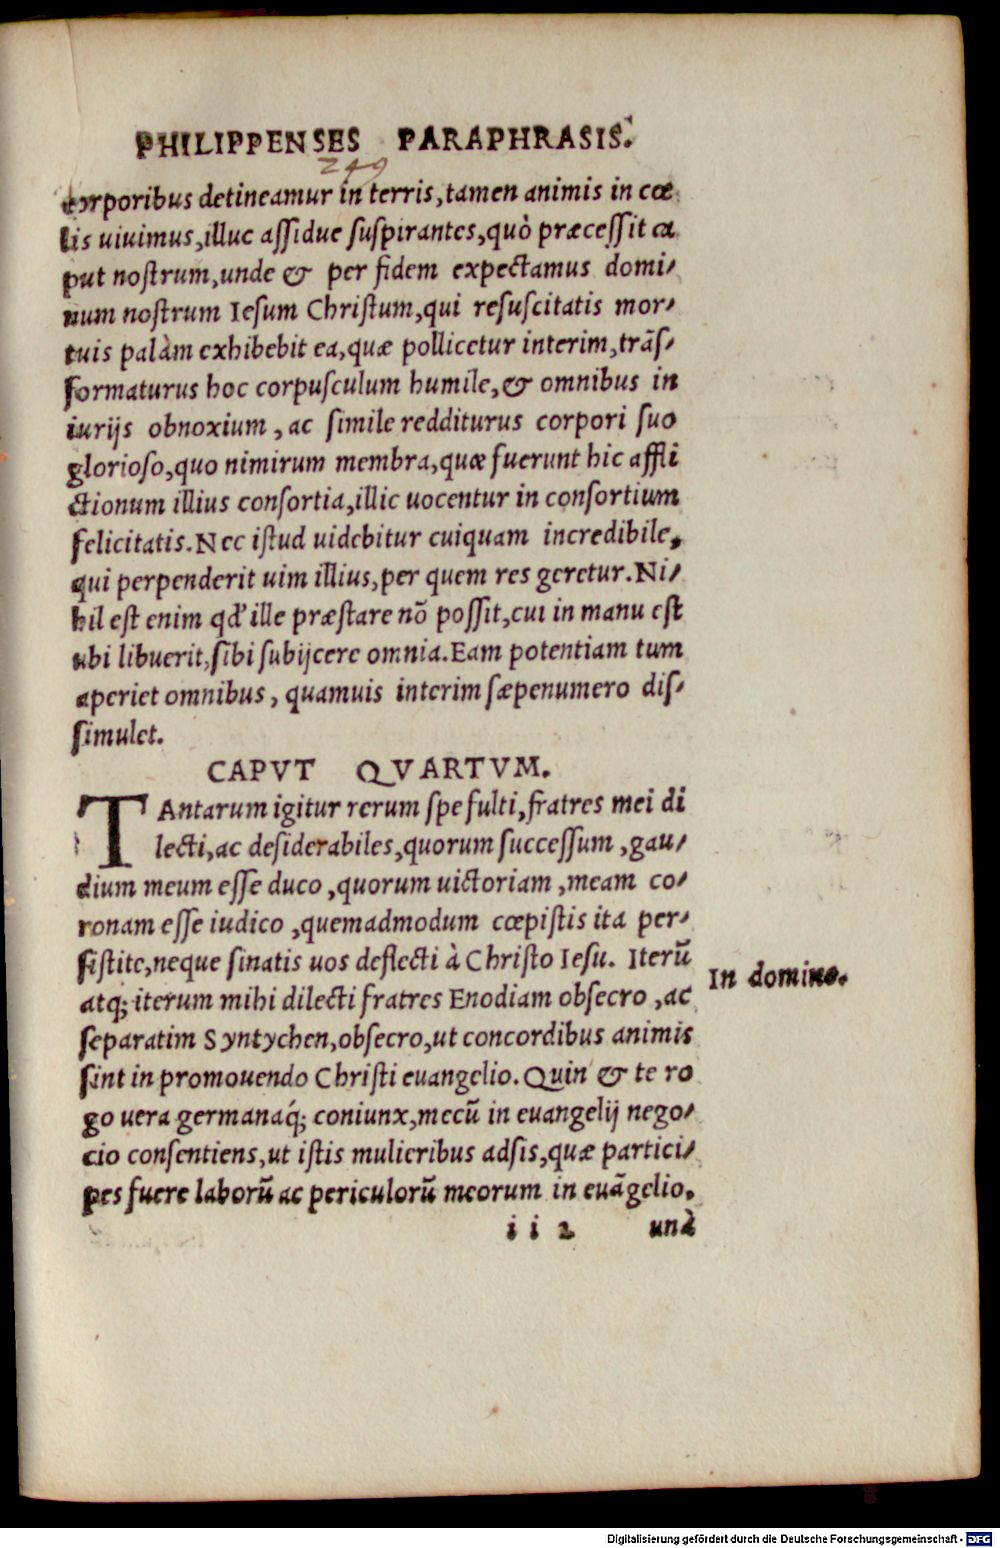 PHILIPPENSES PARAPHRASIS.
249
corporibus detineamur in terris, tamen animis in cœ
lis uiuimus, illuc aſſidue ſuſpirantes, quò præceſſit ca
put noſtrum, unde & per fidem expectamus domi-
num noſtrum Ieſum Chriſtum, qui reſuſcitatis mor-
tuis palàm exhibebit ea, quæ pollicetur interim, trãſ-
formaturus hoc corpuſculum humile, & omnibus in
iurijs obnoxium, ac ſimile redditurus corpori ſuo
glorioſo, quo nimirum membra, quæ fuerunt hic affli
ctionum illius conſortia, illic uocentur in conſortium
felicitatis. Nec iſtud uidebitur cuiquam incredibile,
qui perpenderit uim illius, per quem res geretur. Ni-
hil eſt enim qd' ille præſtare nõ poſſit, cui in manu eſt
ubi libuerit, ſibi ſubijcere omnia. Eam potentiam tum
aperiet omnibus, quamuis interim ſæpenumero diſ-
ſimulet.
CAPVT QVARTVM.
TAntarum igitur rerum ſpe fulti, fratres mei di
lecti, ac deſiderabiles, quorum ſucceſſum, gau-
dium meum eſſe duco, quorum uictoriam, meam co-
ronam eſſe iudico, quemadmodum cœpiſtis ita per-
ſiſtite, neque ſinatis uos deflecti à Chriſto Ieſu. Iterũ
In domino.
atq; iterum mihi dilecti fratres Enodiam obſecro, ac
ſeparatim Syntychen, obſecro, ut concordibus animis
ſint in promouendo Chriſti euangelio. Quin & te ro
go uera germanáq; coniunx, mecũ in euangelij nego-
cio conſentiens, ut iſtis mulieribus adſis, quæ partici-
pes fuere laborũ ac periculorũ meorum in euãgelio,
ii 2 unà
Digitalisierung gefördert durch die Deutsche Forschungsgemeinschaft - DFG